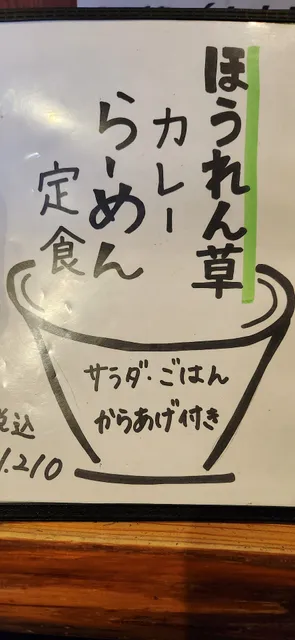 ほうれん草
カレー
らーめん
定食
サラダ・ごはん
からあげ付き
税込
1.210